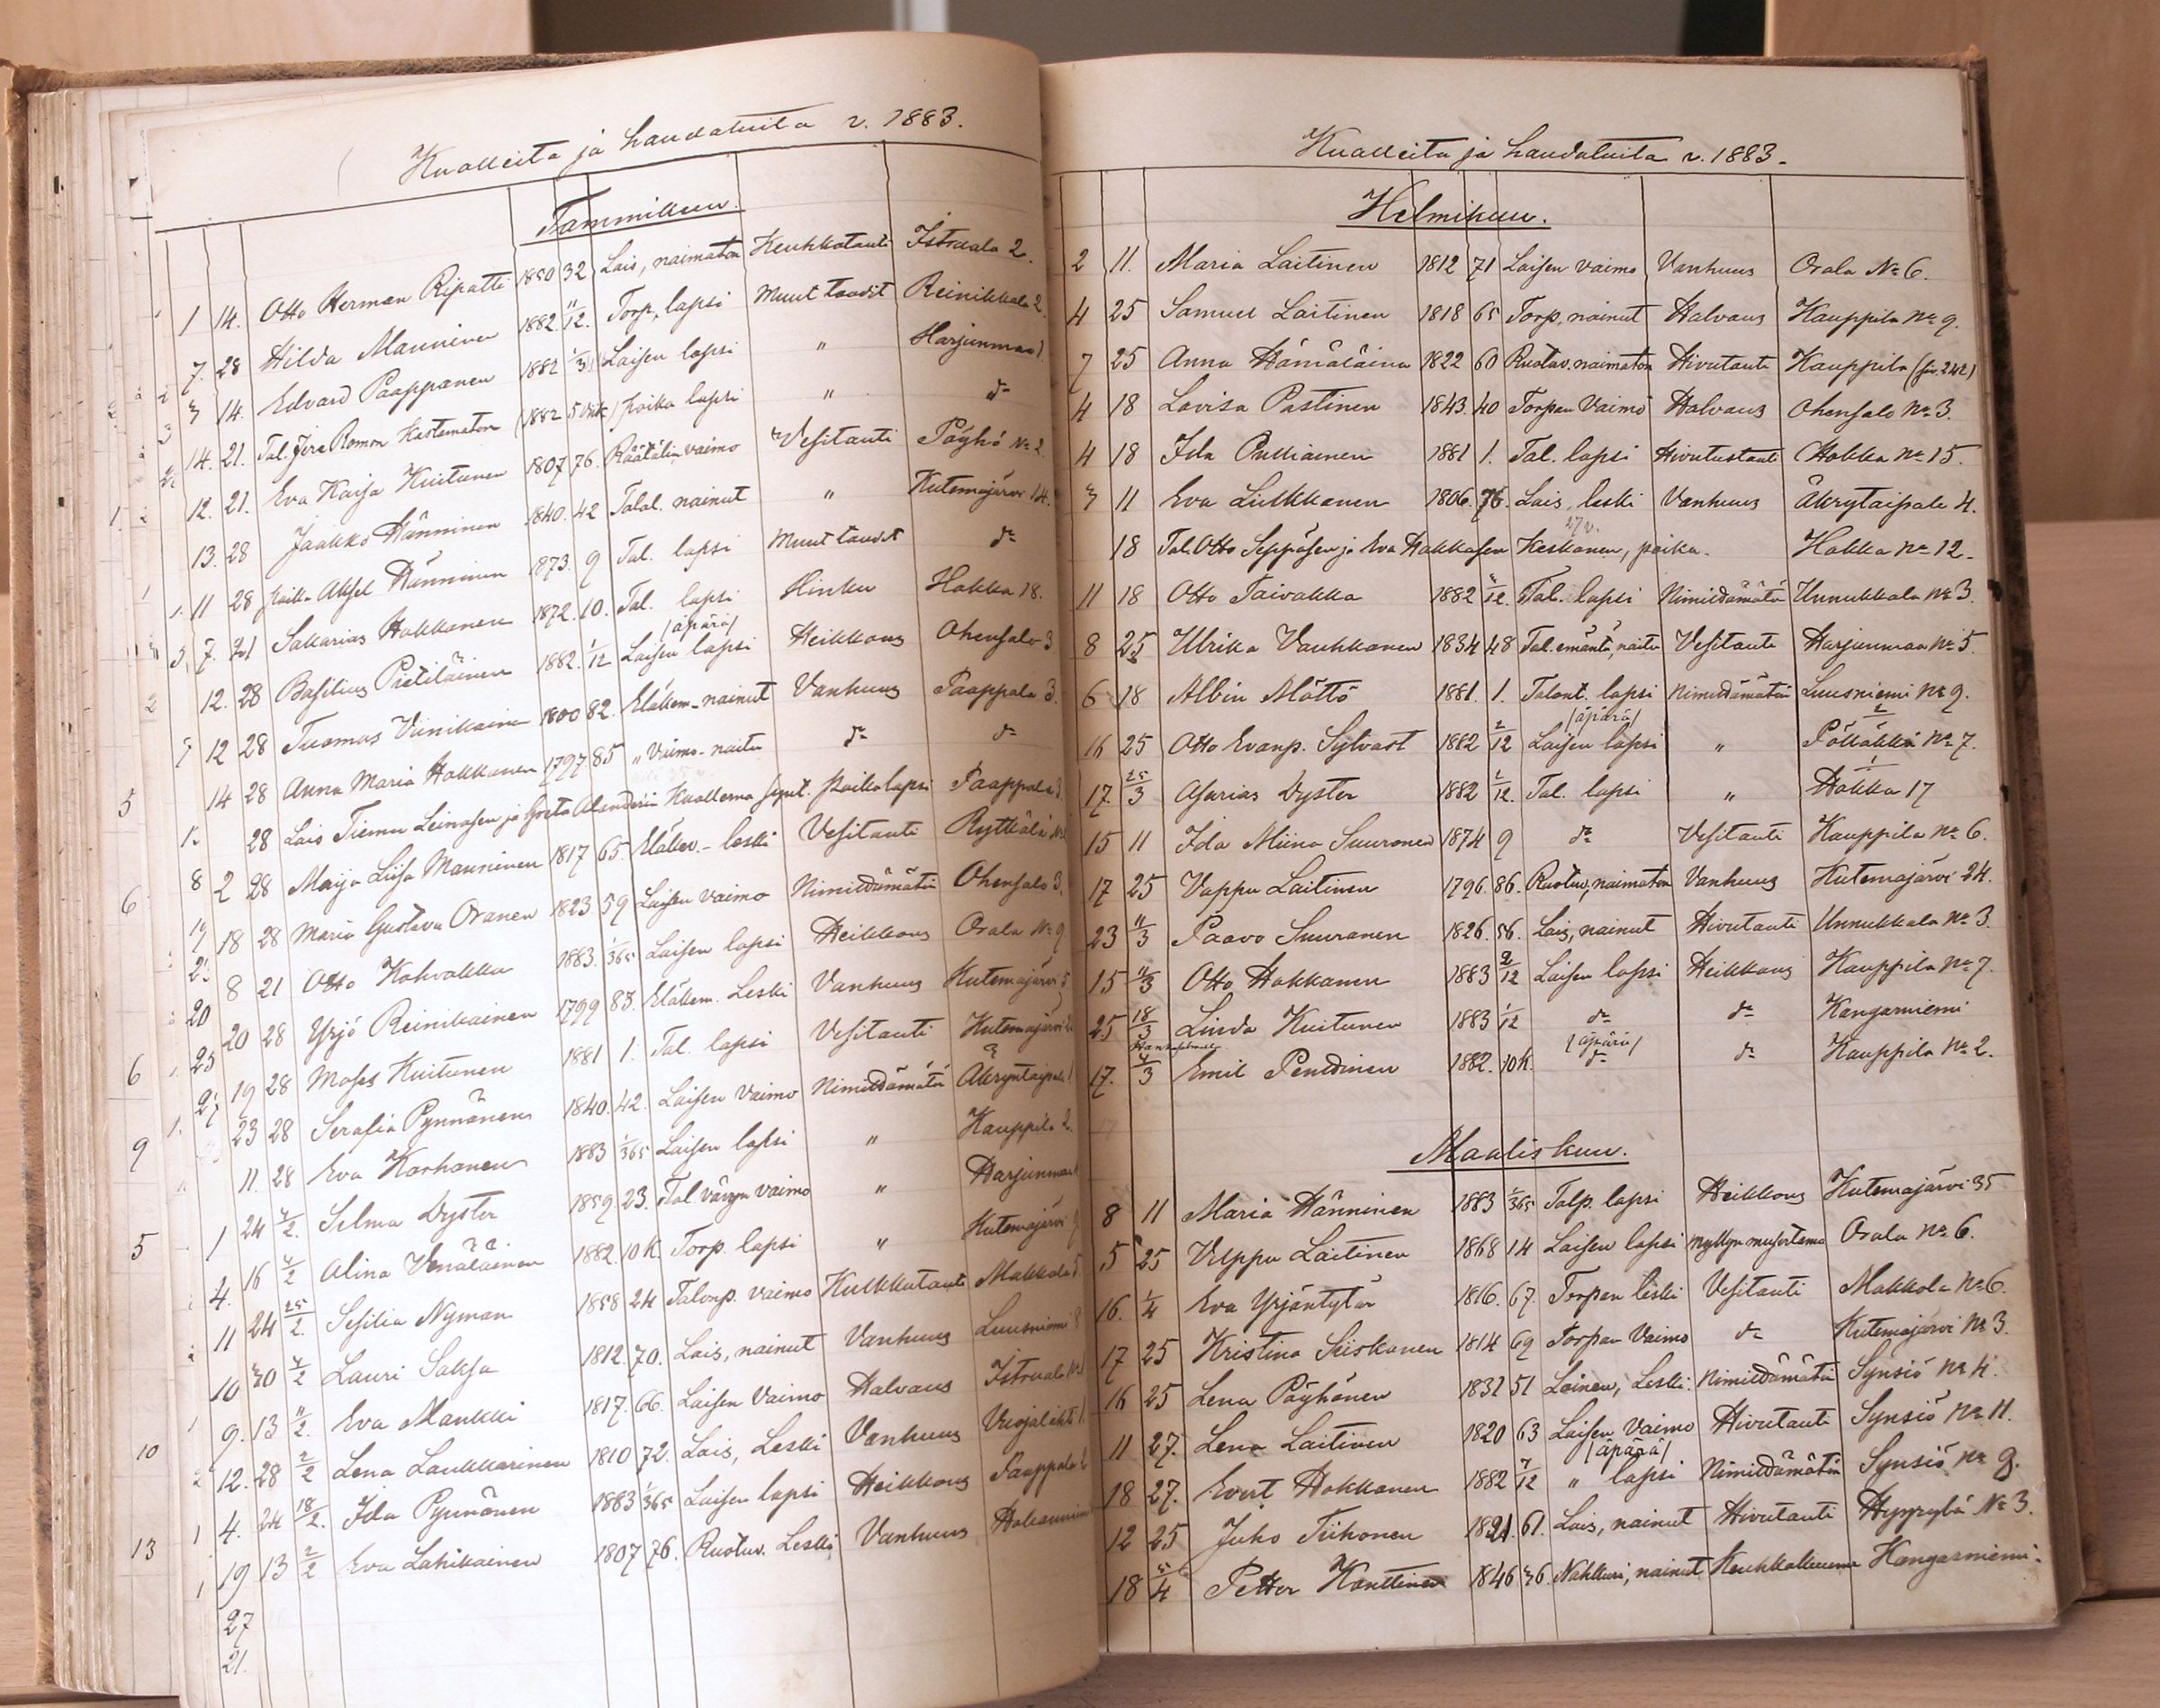 Kuolleita ja haudatuita v. 1883.
Tammikuu.
1 14. Otto Herman Ripatti 1850 32 Lais, naimaton Keuhkotauti Istruala 2.
7. 28 Hilda Manninen 1882 11/12. Torp. lapsi Muut taudit Reinikkala 2.
3 14. Edvard Paappanen 1882 Laisen lapsi " Harjunmaa 1.
14. 21. Tal. Jere Romon Kastematon 1882 5 viik. poika lapsi " do
12. 21. Eva Kaisa Kuitunen 1807 76. Räätälin vaimo Vesitauti Pöyhö No 2
13. 28 Jaakko Hänninen 1840. 42 Talol. nainut " Kutemajärvi 14.
11 28 poika Aksel Hänninen 1873. 9 Tal. lapsi Muut taudit do
7. 21 Sakarias Hokkanen 1872. 10. Tal. lapsi Hinku Hokka 18.
12. 28 Basilius Pietiläinen 1882. 1/12 Laisen lapsi /äpärä/ Heikkous Ohensalo 3
12 28 Tuomas Viinikainen 1800 82. Eläkem. nainut Vanhuus Paappala 3.
14 28 Anna Maria Hokkanen 1797 85 " Vaimo - naitu do do
28 Lais Tiemu Leinosen ja Greta Alanderin Kuollena synt. Poikalapsi Paappala 3.
2 28 Maija Liisa Manninen 1817 65. Eläkev. - leski Vesitauti Rytkölä
18 28 Maria Gustava Oranen 1823 59 Laisen vaimo Nimittämätön Ohensalo 3.
8 21 Otto Kohvakka 1883. 1/365 Laisen lapsi Heikkous Orala No 9
20 28 Yrjö Reinikainen 1799 83. Eläkem. Leski Vanhuus Kutemajärvi 5
19 28 Moses Kuitunen 1881 1. Tal. lapsi Vesitauti Kutemajärvi
23 28 Serafia Pynnönen 1840. 42. Laisen vaimo Nimittämätä Äkryntaipale 1.
11. 28 Eva Korhonen 1883 1/365 Laisen lapsi " Kauppila 2.
24 4/2. Selma Dyster 1859 23. Tal. vävyn vaimo " Harjunmaa
16 4/2 Alina Venäläinen 1882. 10 K. Torp. lapsi " Kutemajärvi 9
24 25/2. Sesilia Nyman 1858 24 Talonp. vaimo Kulkkutauti Makkola 5.
30 4/2 Lauri Saksa 1812. 70. Lais, nainut Vanhuus Luusniemi 8
13 11/2. Eva Maukki 1817. 66. Laisen Vaimo Halvaus Istruala No
28 2/2 Lena Laukkarinen 1810 72. Lais, Leski Vanhuus Vuojalahti 1.
24 18/2. Ida Pynnönen 1883 1/365 Laisen lapsi Heikkous Paappala
13 2/2 Eva Lahikainen 1807 76. Ruotuv. Leski Vanhuus
27
21.
Kuolleita ja haudatuita v. 1883.
Helmikuu.
2 11. Maria Laitinen 1812 71 Laisen vaimo Vanhuus Orala No 6.
4 25 Samuel Laitinen 1818 65 Torp. nainut Halvaus Kauppila No 9.
7 25 Anna Hämäläinen 1822 60 Ruotuv. naimaton Hivutauti Kauppila (siv. 242)
4 18 Lovisa Pastinen 1843. 40 Torpan Vaimo Halvaus Ohensalo No 3.
4 18 Ida Pulliainen 1881 1. Tal. lapsi Hivutustauti Hokka No 15.
3 11 Eva Liukkonen 1806. 76. Lais. leski Vanhuus Äkrytaipale 4.
18 Tal. Otto Seppäsen ja Eva Hokkasen Keskonen, poika. Hokka No 12.
11 18 Otto Taivakka 1882 Tal. lapsi Nimittämätä Unnukkala No 3.
8 25 Ulrika Vauhkonen 1834 48 Tal. emäntä, naitu Vesitauti Harjunmaa No 5.
6 18 Albin Möttö 1881. 1. Talont. lapsi Nimittämätön Luusniemi No 9.
16 25 Otto Evanp. Sylvast 1882 2/12 Laisen lapsi /äpärä/ " Pölläkkä No 7.
17. 25/3 Asarias Dyster 1882 1/12. Tal. lapsi " Hokka 17
15 11 Ida Miina Suuronen 1874 9 do Vesitauti Kauppila No 6.
17 25 Vappu Laitinen 1796. 86. Ruotuv, naimaton Vanhuus Kutemajärvi 24.
23 11/3 Paavo Suuronen 1826. 56. Lais, nainut Hivutauti Unnukkala No 3.
15 11/3 Otto Hokkanen 1883 2/12 Laisen lapsi Heikkous Kauppila No 7.
25 18/3 Linda Kuitunen 1883 1/12 do do Kangasniemi
Hankasalmella
17. 4/3 Emil Penttinen 1882. 10 K. /äpärä/ do do Kauppila No 2.
Maaliskuu.
8 11 Maria Hänninen 1883 1/365 Talp. lapsi Heikkous Kutemajärvi 35
5 25 Vilppu Laitinen 1868 14 Laisen lapsi Myllyn musertama Orala No 6.
16. 1/4 Eva Yrjäntytär 1816. 67. Torpan leski Vesitauti Makkola No 6.
17 25 Kristina Siiskonen 1814 69 Torpan Vaimo do Kutemajärvi No 3.
16 25 Lena Pöyhönen 1832 51 Loinen, Leski. Nimittämätön Synsiö No 4.
11 27. Lena Laitinen 1820 63 Laisen Vaimo Hivutauti Synsiö No 11.
18 27. Evert Hokkanen 1882 7/12 " lapsi /äpärä/ Nimittämätön Synsiö No 9.
12 25 Juho Tiihonen 1821. 61. Lais, nainut Hivutauti Hyyrylä No 3.
18 Petter Konttinen 1846 36. Nahkuri, nainut Keuhkokuume Kangasniemi.